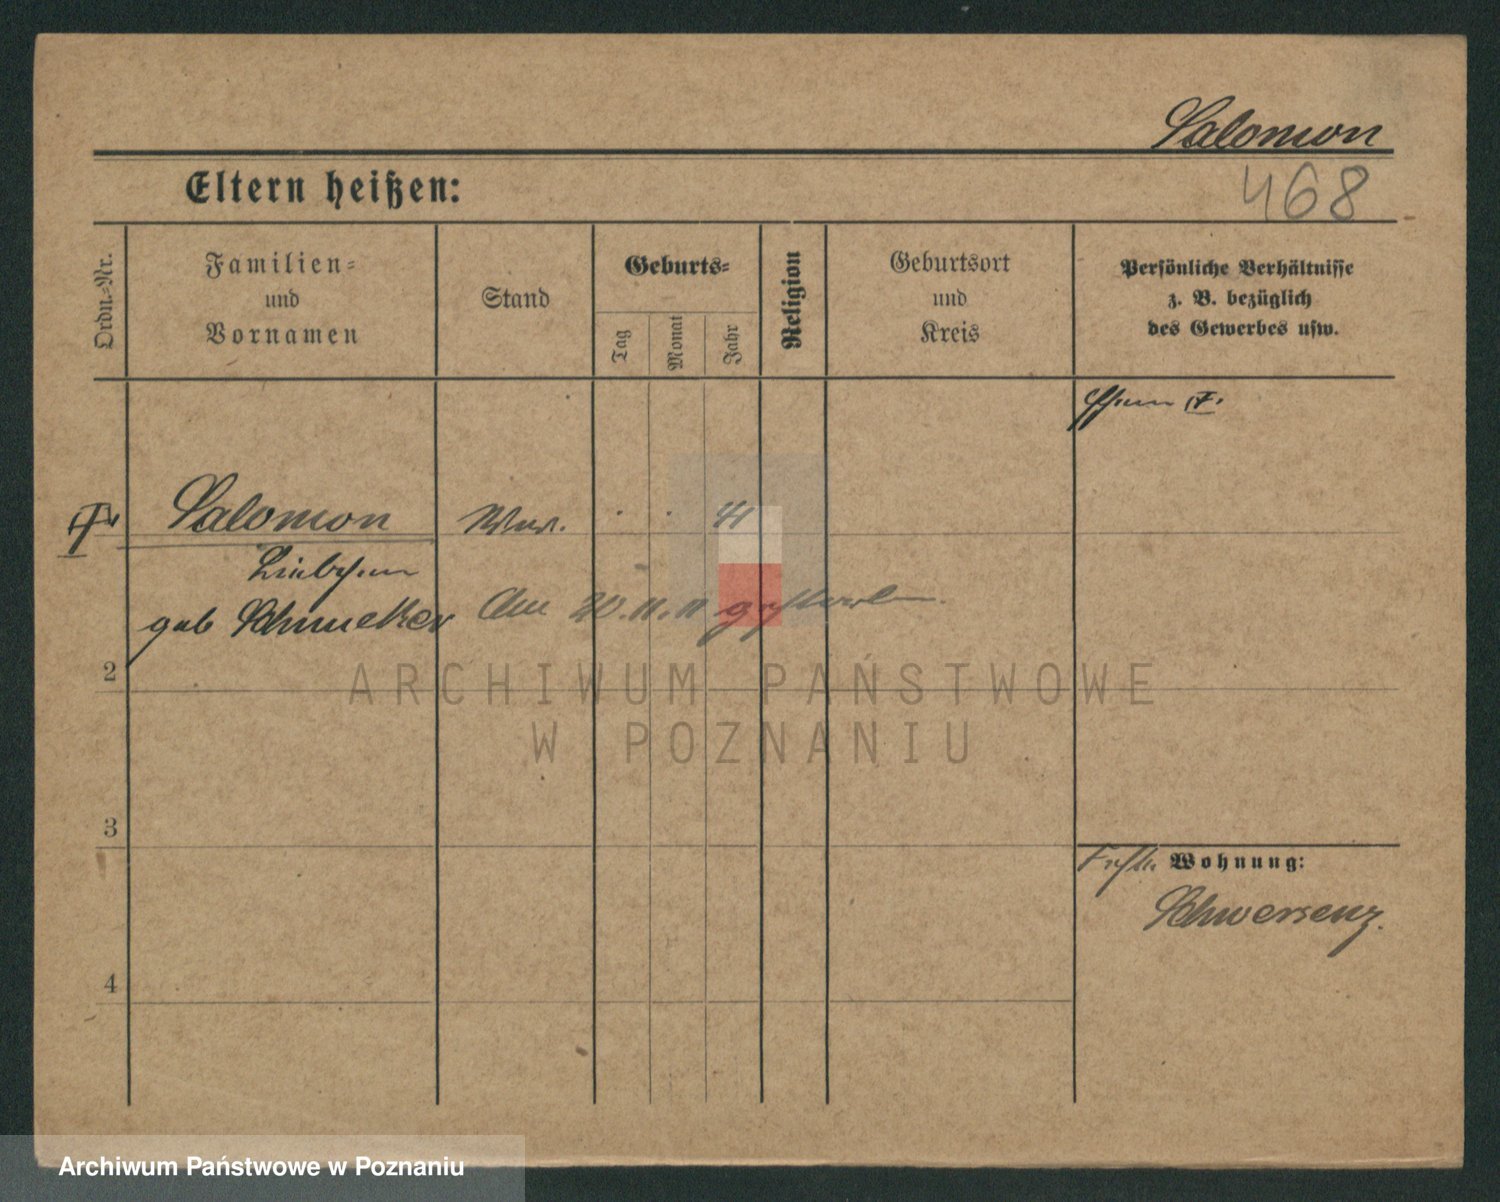 Salomon
Eltern heißen:
468
Ordn.-Nr.
Familien-
und
Vornamen
Stand
Geburts-
Tag
Monat
Jahr
Religion
Geburtsort
und
Kreis
Persönliche Verhältnisse
z. B. bezüglich
des Gewerbes usw.
Salomon
Wwe.
41
geb Schmucker
Am 20.11.11 gestorben.
2
ARCHIWUM PAŃSTWOWE
W POZNANIU
3
Wohnung:
Schwersenz.
4
Archiwum Państwowe w Poznaniu